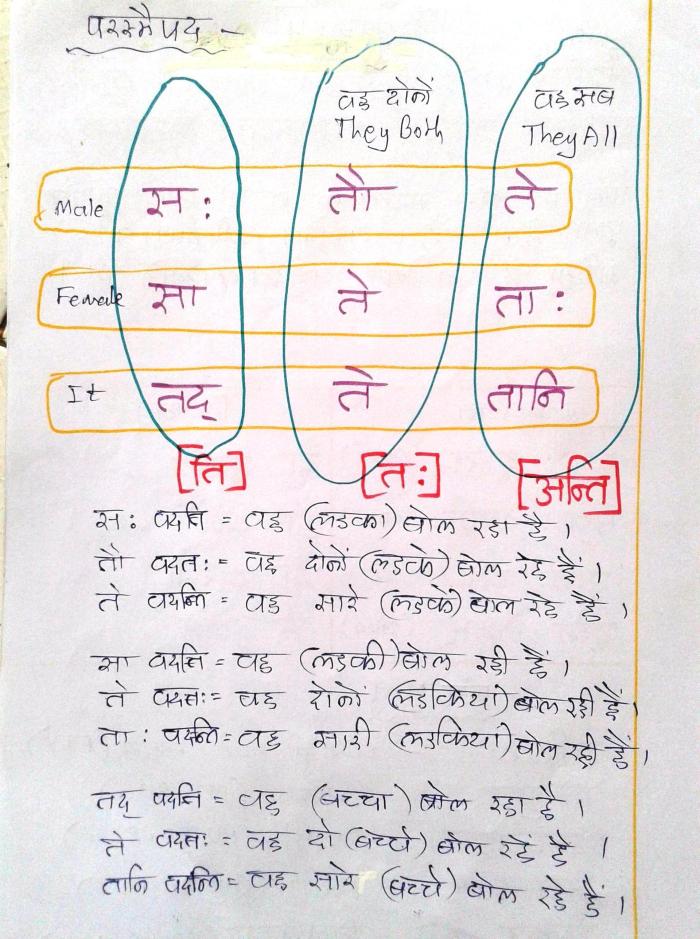 परस्मैपद -
वह दोनों वह सब
They Both They All
Male सः तौ ते
Female सा ते ताः
It तद् ते तानि
[ति] [तः] [अन्ति]
सः वदति = वह (लडका) बोल रहा है ।
तौ वदतः = वह दोनों (लडके) बोल रहे हैं ।
ते वदन्ति = वह सारे (लडके) बोल रहे हैं ।
सा वदति = वह (लडकी) बोल रही हैं ।
ते वदतः = वह दोनों (लडकियां) बोल रही हैं ।
ताः वदन्ति = वह सारी (लडकियां) बोल रही हैं ।
तद् वदति = वह (बच्चा) बोल रहा है ।
ते वदतः = वह दो (बच्चे) बोल रहें है ।
तानि वदन्ति = वह सारे (बच्चे) बोल रहे हैं ।